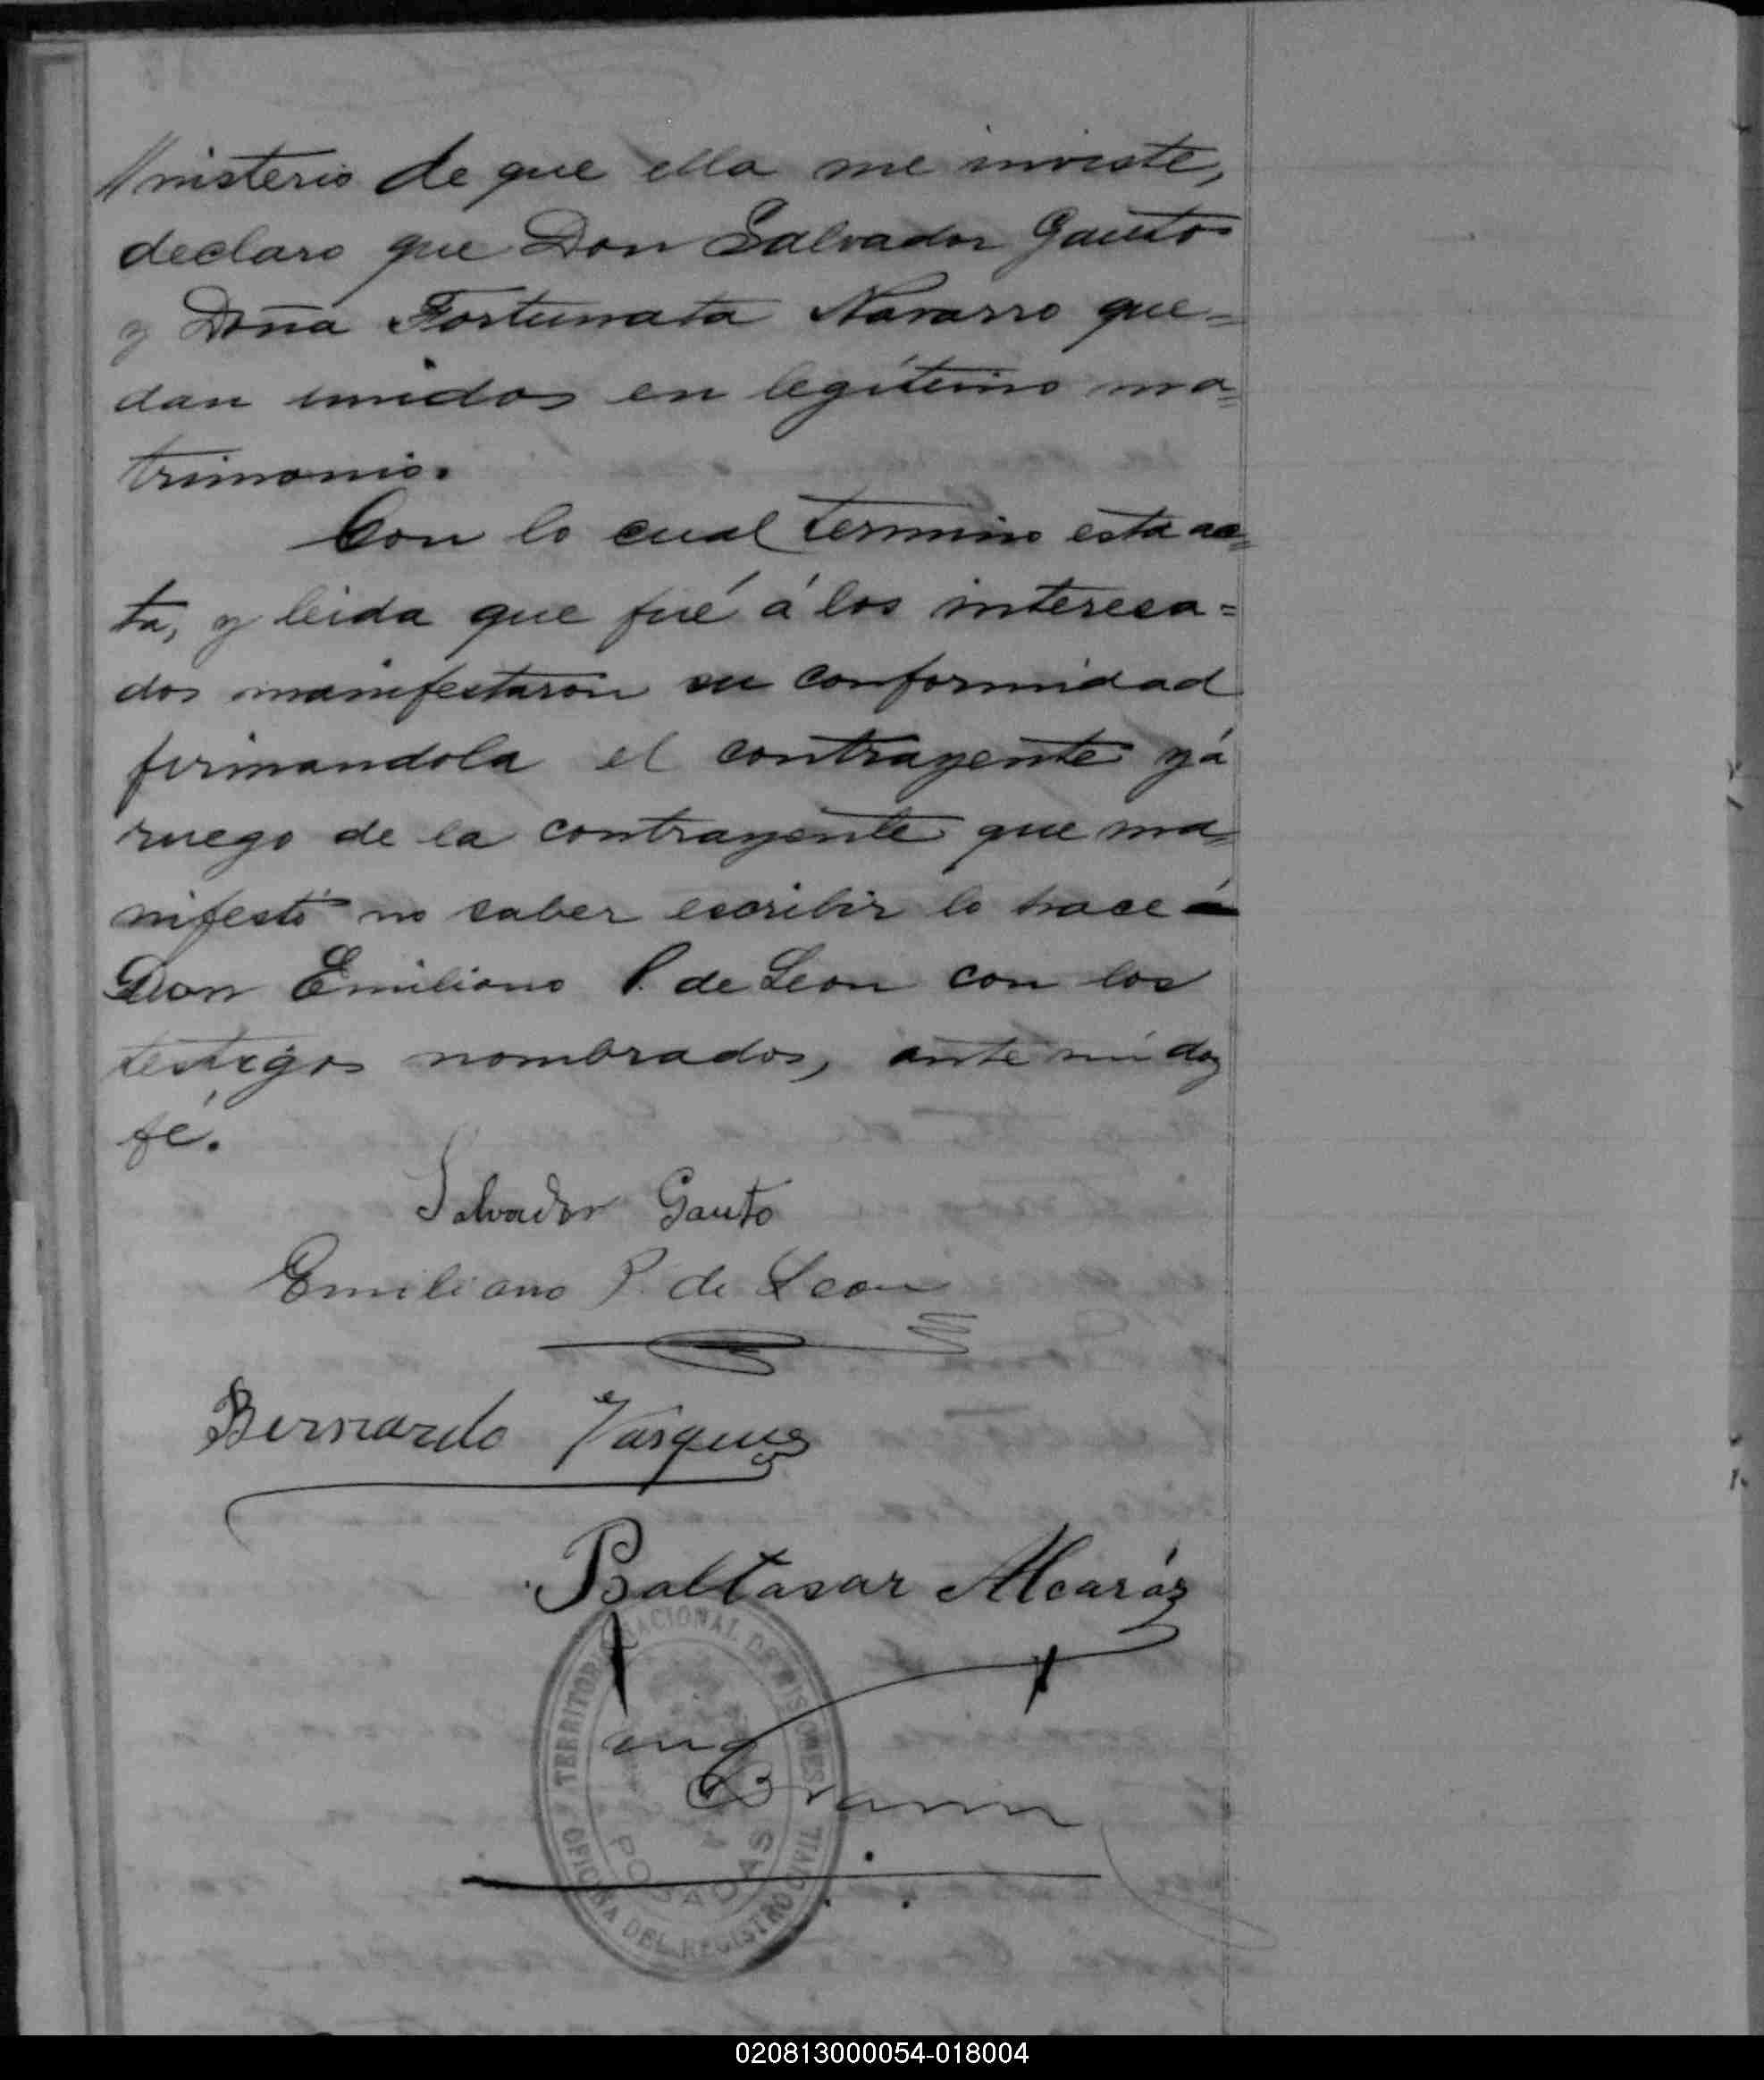 Ministerio de que ella me inviste,
declaro que Don Salvador Gauto
y Doña Fortunata Navarro que=
dan unidos en legítimo ma=
trimonio.
Con lo cual termino esta ac=
ta, y leida que fué á los interesa=
dos manifestaron su conformidad
firmandola el contrayente y á
ruego de la contrayente que ma=
nifestó no saber escribir lo hace
Don Emiliano P. de Leon con los
testigos nombrados, ante mí doy
fé.
Salvador Gauto
Emiliano P. de Leon
Bernardo Vasquez
Baltasar Alcaráz
TERRITORIO NACIONAL DE MISIONES
POSADAS
OFICINA DEL REGISTRO CIVIL
020813000054-018004